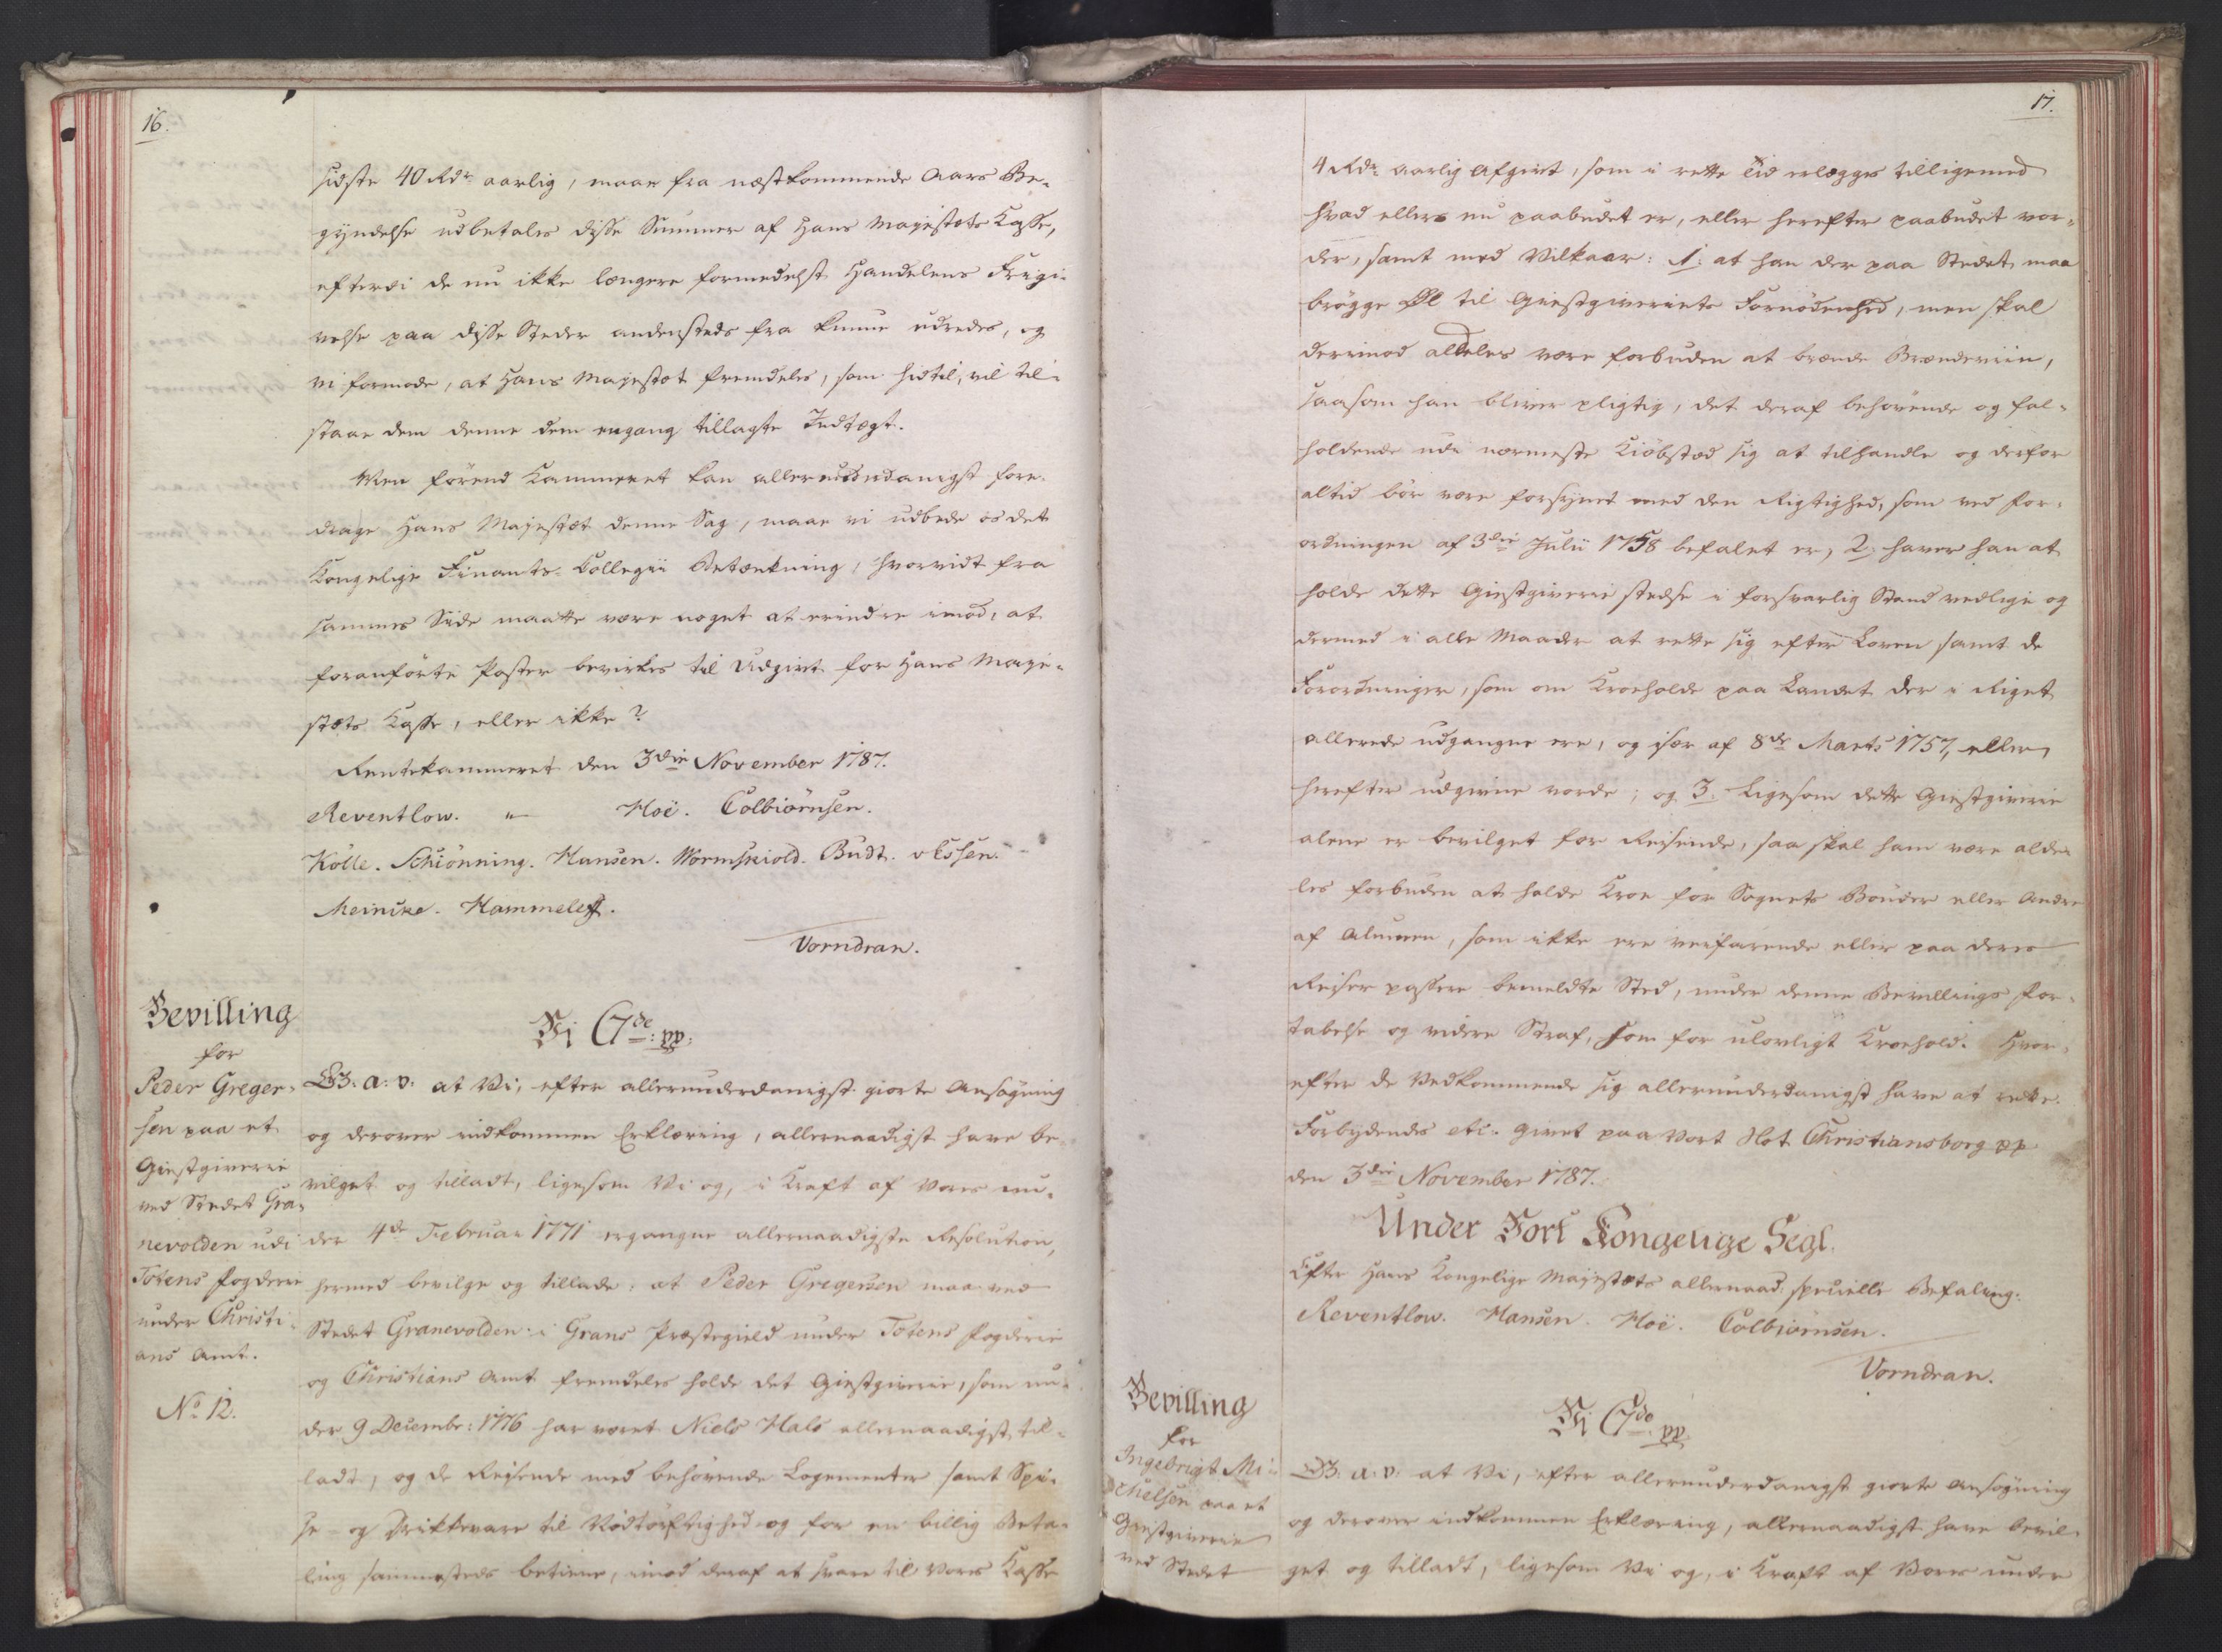 16.
sidste 40 Rdr. aarlig, maae fra næstkommende Aars Be-
gyndelse udbetales disse Summer af Hans Majestæts Kasse,
efterdi de nu ikke længere formedelst Handelens Frigi-
velse paa disse Steder andensteds fra kunne udredes, og
vi formode, at Hans Majestæt fremdeles, som hidtil, vil til-
staae dem denne dem engang tillagte Indtægt.
Men förend Kammeret kan allerunderdanigst fore-
drage Hans Majestæt denne Sag, maae vi udbede os det
Kongelige Finants-Collegii Betænkning, hvorvidt fra
sammes Side maatte være noget at erindre imod, at
foranförte Poster bevirkes til Udgivt for Hans Maje-
stæts Kasse, eller ikke?
Rentekammeret den 3die November 1787.
Reventlow. " Hoë. Colbiörnsen.
Kölle. Schiönning. Hansen. Wormskiold. Budt. v Essen.
Meincke. Hammeleff.
Vorndran.
Bevilling
for
Peder Greger-
sen paa et
Giestgiverie
ved Stedet Gra-
nevolden udi
Totens Fogderie
under Christi-
ans Amt.
No 12.
Vi C 7de: pp:
G: a: v: at Vi, efter allerunderdanigst giorte Ansögning
og derover indkommen Erklæring, allernaadigst have be-
vilget og tilladt, ligesom Vi og, i Kraft af Vores un-
der 4de Februar 1771 ergangne allernaadigste Resolution,
hermed bevilge og tillade: at Peder Gregersen maa ved
Stedet Granevolden i Grans Præstegield under Totens Fogderie
og Christians Amt fremdeles holde det Giestgiverie, som un-
der 9 Decembr: 1776 har været Niels Hals allernaadigst til-
ladt, og de Reisende med behövende Logementer samt Spi-
se- og Drikkevare til Nödtörftighed og for en billig Beta-
ling sammesteds betiene, imod deraf at svare til Vores Kasse
17.
4 Rdr. aarlig Afgivt, som i rette Tid erlægges tilligemed
hvad ellers nu paabudet er, eller herefter paabudet vor-
der, samt med Vilkaar: 1: at han der paa Stedet maa
brögge Öl til Giestgiveriets Fornödenhed, men skal
derimod aldeles være forbuden at brænde Brændeviin,
saasom han bliver pligtig, det deraf behövende og fal-
holdende udi nærmeste Kiöbstæd sig at tilhandle og derfor
altid bör være forsynet med den Rigtighed, som ved For-
ordningen af 3die Julii 1758 befalet er, 2: haver han at
holde dette Giestgiverie stedse i forsvarlig Stand vedlige og
dermed i alle Maader at rette sig efter Loven samt de
Forordninger, som om Kroeholde paa Landet der i Riget
allerede udgangne ere, og især af 8de Marts 1757, eller
herefter udgivne vorde; og 3. Ligesom dette Giestgiverie
alene er bevilget for Reisende, saa skal ham være alde-
les forbuden at holde Kroe for Sognets Bönder eller Andre
af Almuen, som ikke ere veifarende eller paa deres
Reiser passere bemeldte Sted, under denne Bevillings For-
tabelse og videre Straf, som for ulovligt Kroehold. Hvor-
efter de Vedkommende sig allerunderdanigst have at rette.
Forbydendes etc. Givet paa Vort Slot Christiansborg pp
den 3die November 1787.
Under Vort Kongelige Segl.
Efter Hans Kongelige Majestæts allernaad: specielle Befaling.
Reventlow. Hansen. Hoë. Colbiörnsen.
Vorndran.
Bevilling
for
Ingebrigt Mi-
chelsen paa et
Giestgiverie
ved Stedet
Vi C 7de pp
G: a: v: at Vi, efter allerunderdanigst giorte Ansögning
og derover indkommen Erklæring, allernaadigst have bevil-
get og tilladt, ligesom Vi og, i Kraft af Vores under